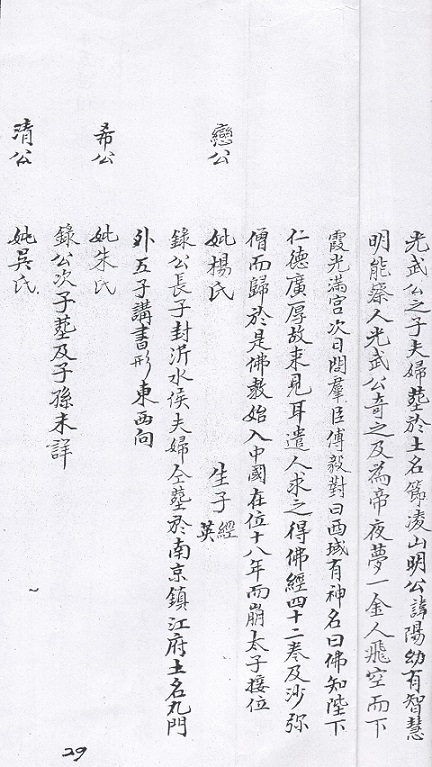 光武公之子夫婦塟於土名節凌山明公諱陽幼有智慧
明能察人光武公奇之及為帝夜夢一金人飛空而下
霞光滿宮次日問羣臣傅毅對曰西域有神名曰佛知陛下
仁德廣厚故来見耳遣人求之得佛經四十二卷及沙弥
僧而歸於是佛教始入中國在位十八年而崩太子接位
戀公 妣楊氏 生子 經英
錄公長子封沂水侯夫婦仝塟於南京鎮江府土名丸門
外五子講書形東西向
希公 妣朱氏
錄公次子塟及子孫未詳
清公 妣吳氏
29